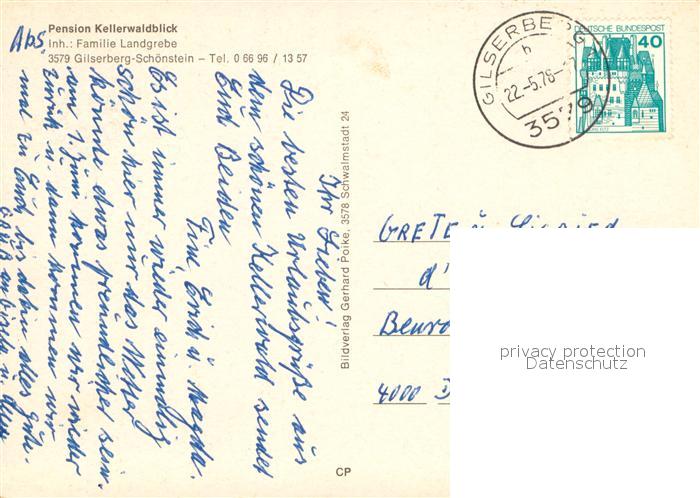 Abs.
Pension Kellerwaldblick
Inh.: Familie Landgrebe
3579 Gilserberg-Schönstein – Tel. 0 66 96 / 13 57
GILSERBERG
h
22.-5.78-
3579
DEUTSCHE BUNDESPOST
40
Ihr Lieben!
Die besten Urlaubsgrüße aus
dem schönen Kellerwald sendet
Euch Beiden
Eure Erich u. Magda.
Es ist immer wieder einmalig
schön hier nur das Wetter
könnte etwas freundlicher sein.
am 1. Juni kommen wir wieder
zurück u. dann kommen wir
mal zu Euch bis dahin alles Gute
Bildverlag Gerhard Poike, 3578 Schwalmstadt 24
GRETE u.
d'
4000 D
privacy protection
Datenschutz
CP